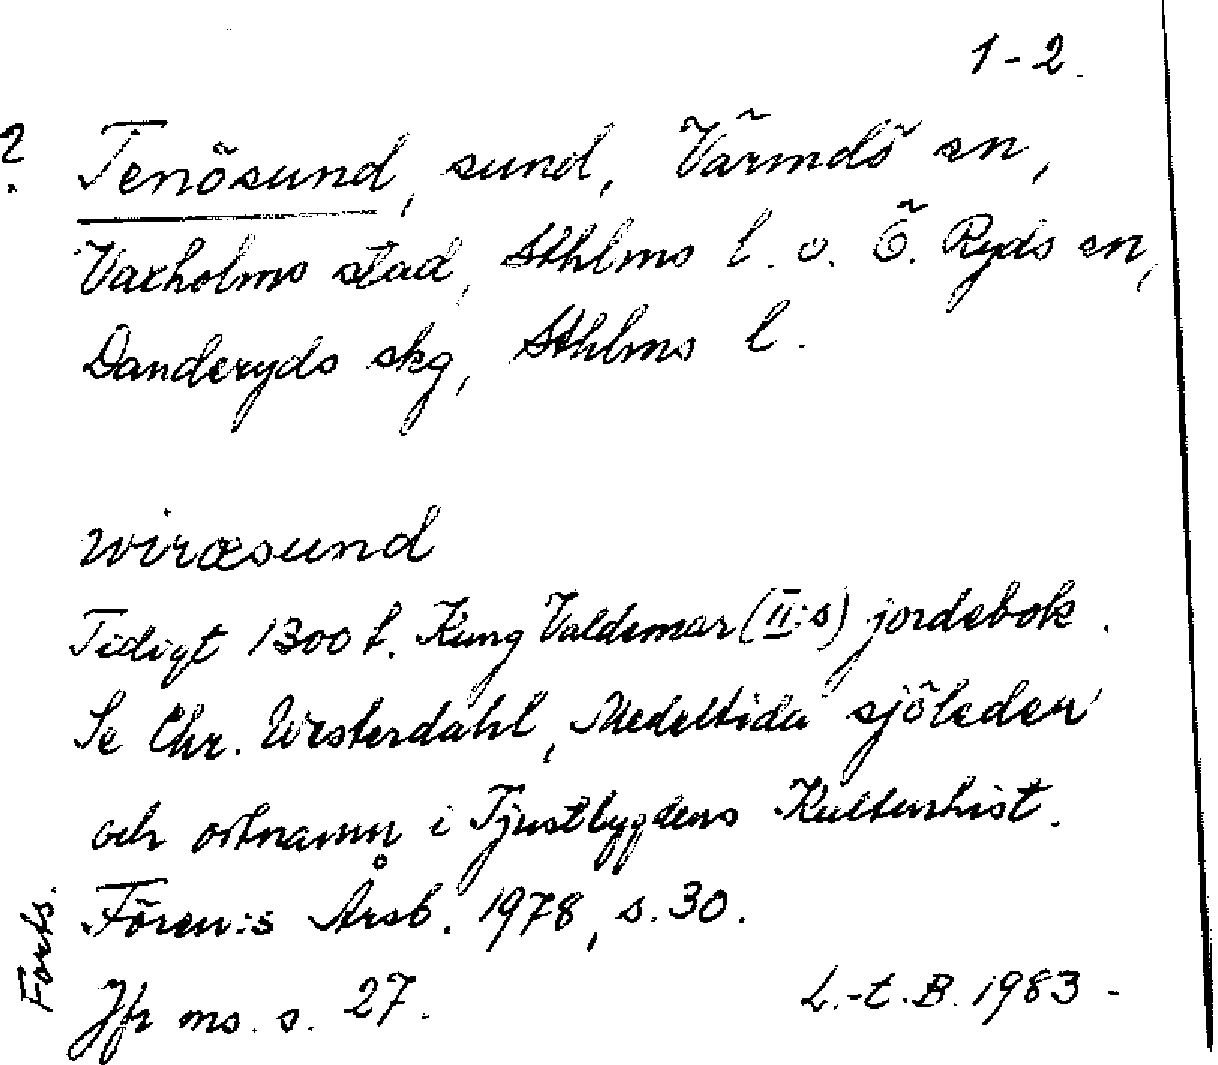 1-2.
? Tenösund, sund, Värmdö sn,
Vaxholms stad, Sthlms l. o. Ö. Ryds sn,
Danderyds skg, Sthlms l.
wiræsund
Tidigt 1300 t. Kung Valdemar (II:s) jordebok.
Se Chr. Westerdahl, Medeltida sjöleder
och ortnamn i Tjustbygdens Kulturhist.
Fören:s Årsb. 1978, s. 30.
Jfr ms. s. 27.
L.-t. B. 1983 -
Forts.